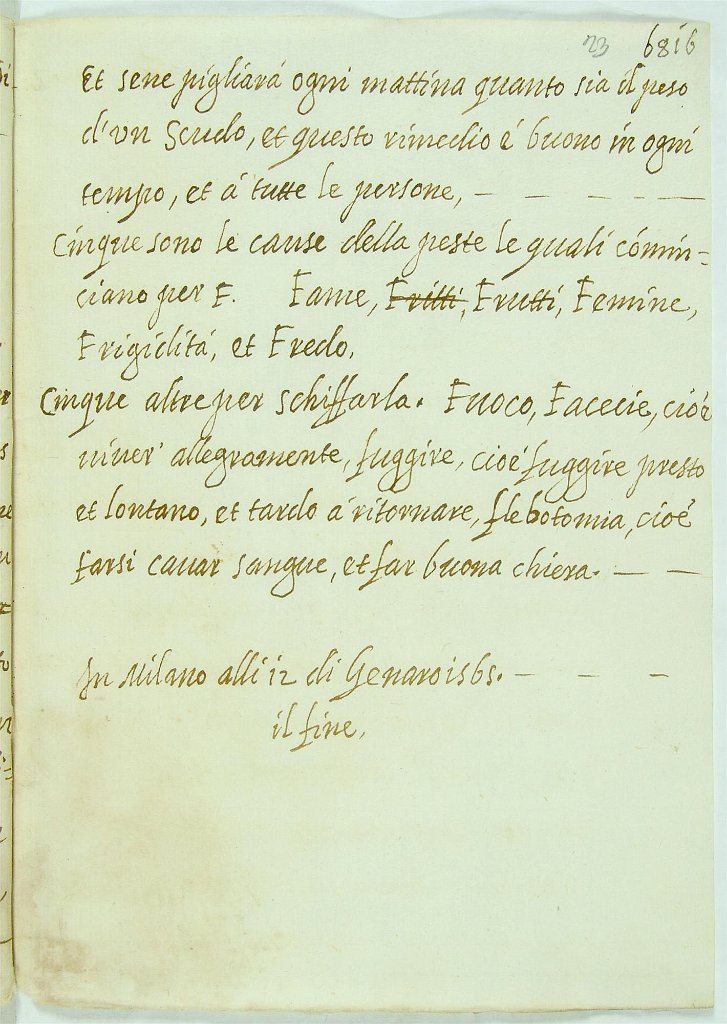 23 6816
Et sene pigliarà ogni mattina quanto sia il peso
d'vn Scudo, et questo rimedio è buono in ogni
tempo, et à tutte le persone, — — — — —
Cinque sono le cause della peste le quali comin=
ciano per F. Fame, Fritti, Frutti, Femine,
Frigidità, et Fredo.
Cinque altre per schiffarla. Fuoco, Facecie, cioè
viuer' allegramente, fuggire, cioè fuggire presto
et lontano, et tardo à ritornare, flebotomia, cioè
farsi cauar sangue, et far buona chiera. — —
In Milano alli 12 di Genaro 1565. — — —
il fine.